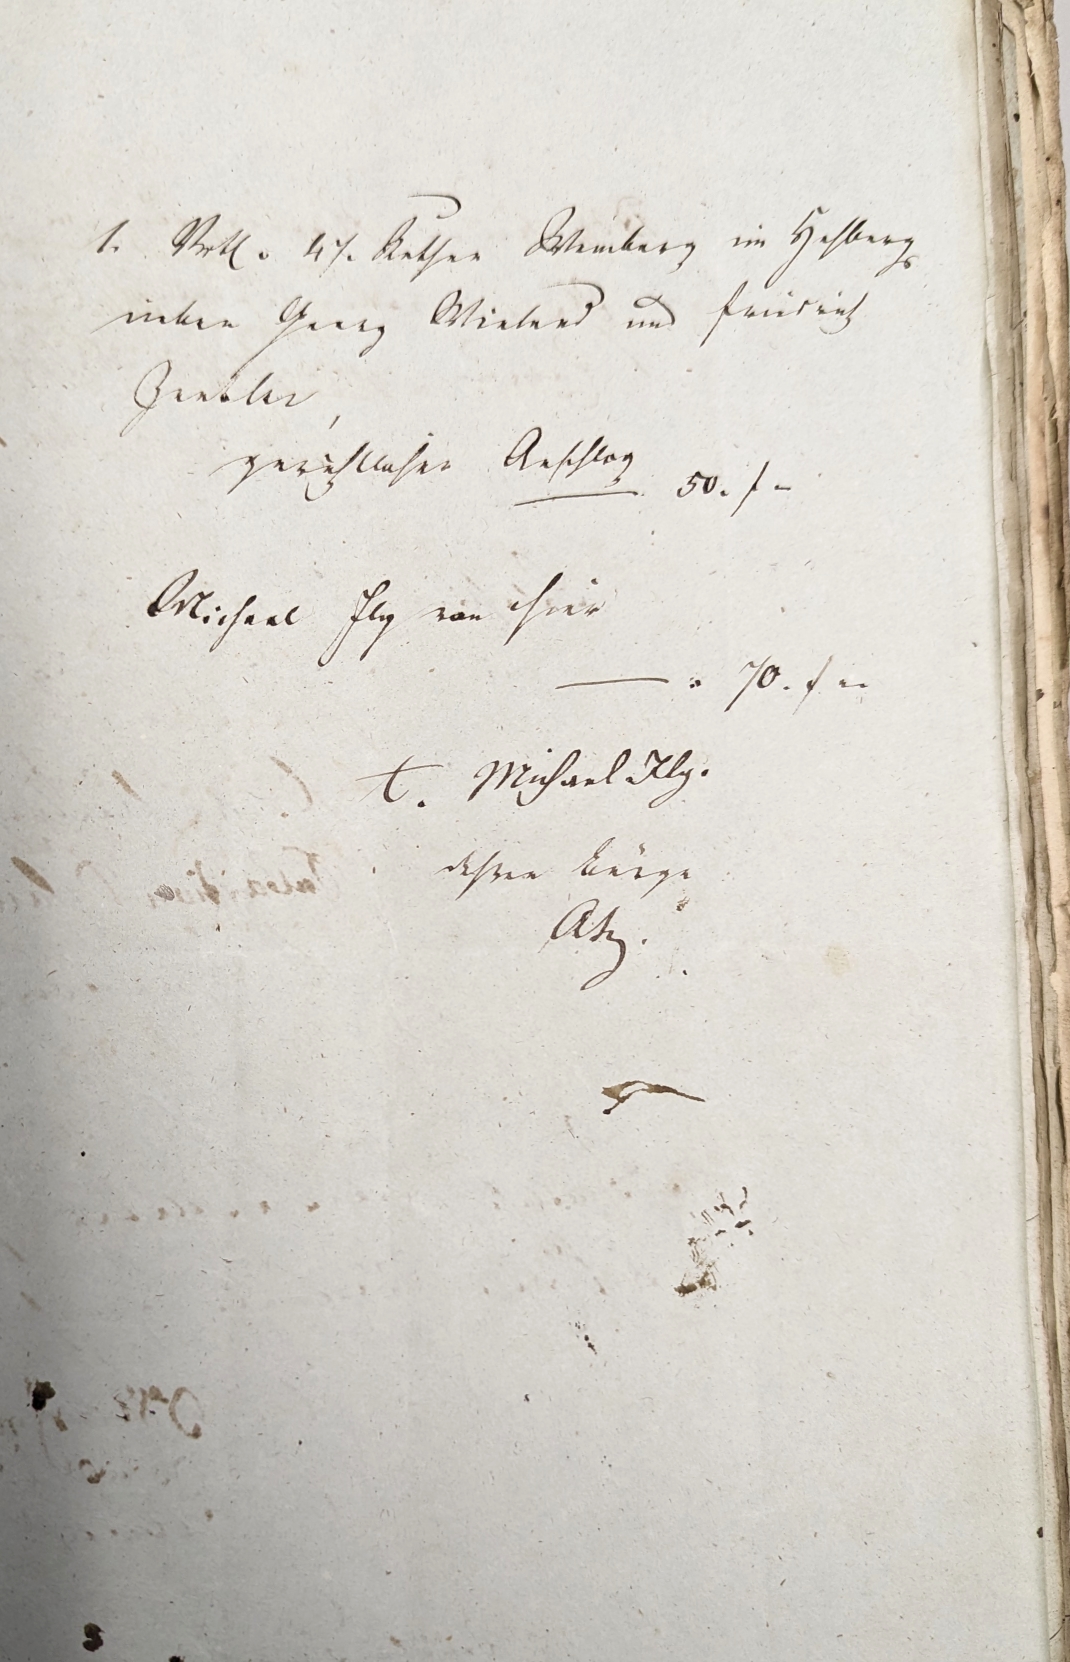 1. Vrtl. 47. Ruthen Weinberg im Hesberg
neben Georg Wieland und Friedrich
gerichtlicher Anschlag 50. f -
Michael Ilg von hier
70. f
t. Michael Ilg.
dessen Bürge